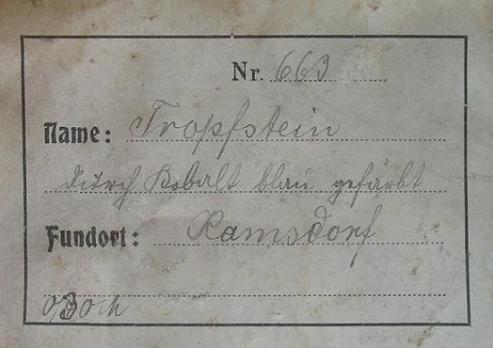 Nr. 663
Name: Tropfstein
durch Kobalt blau gefärbt
Fundort: Ramsdorf